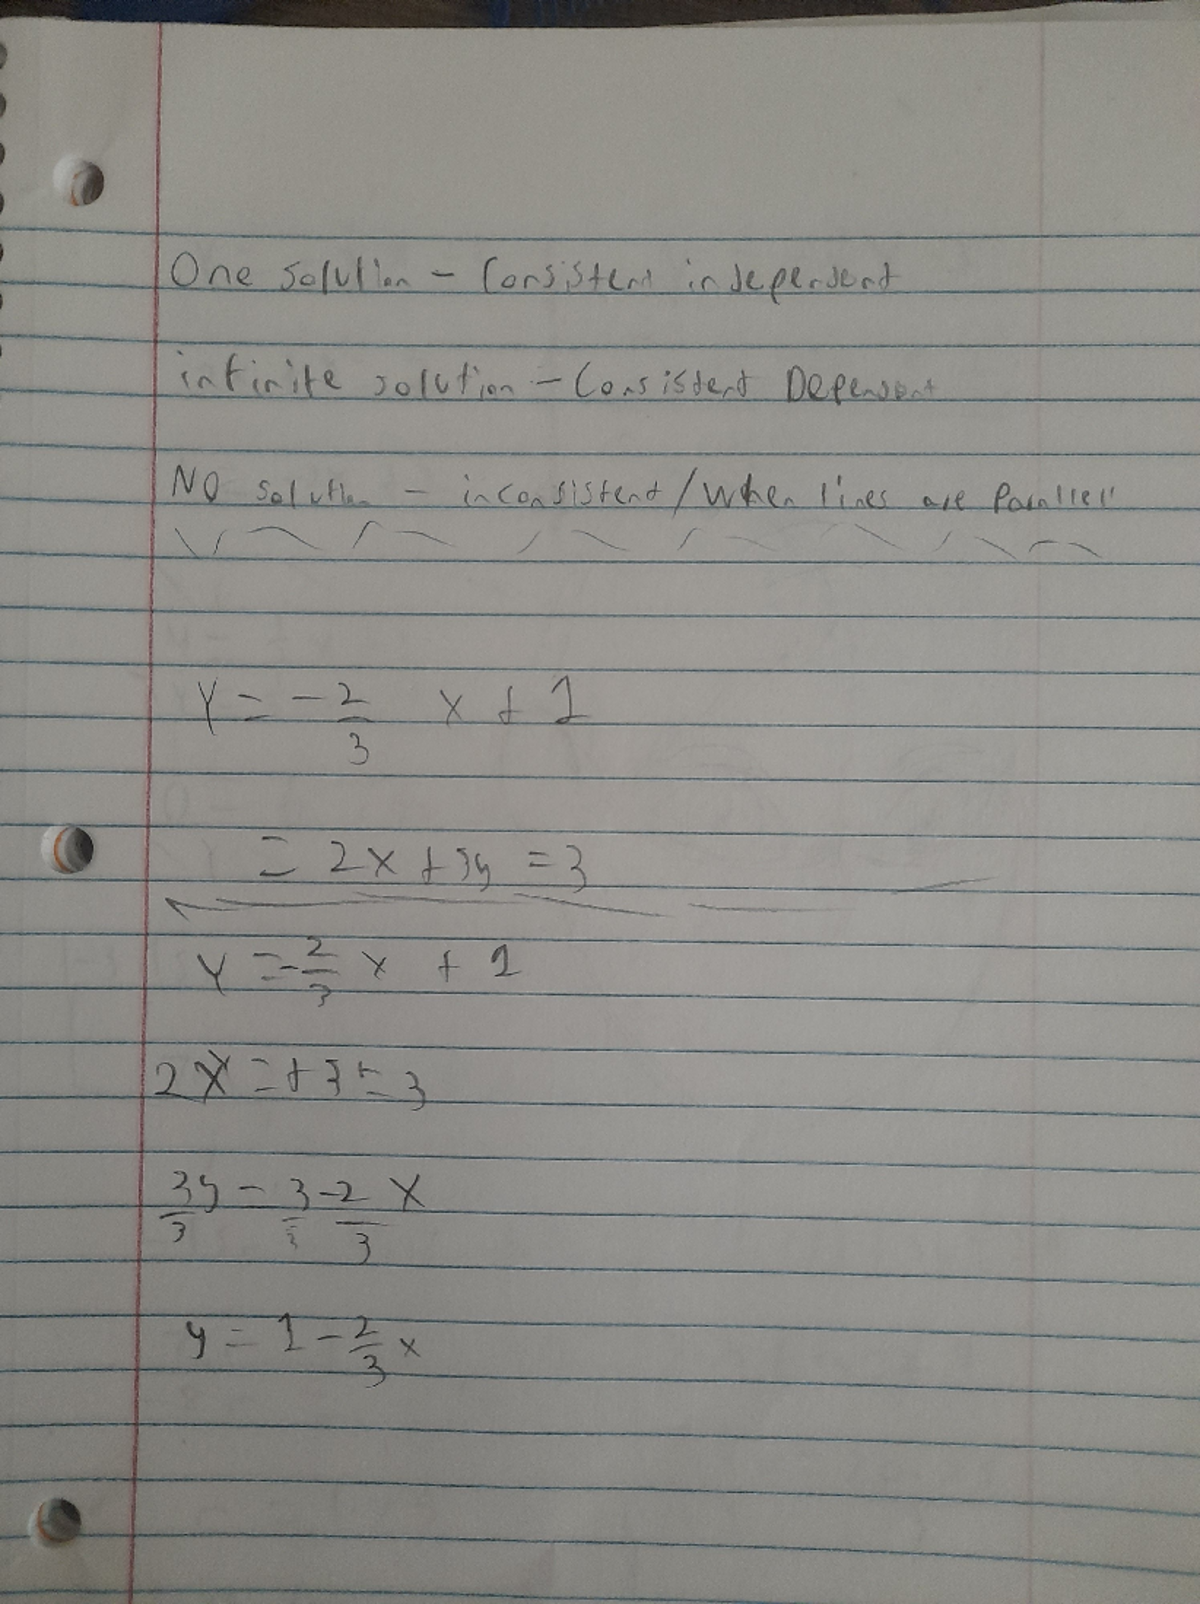 One solution - Consistent independent
infinite solution - Consistent Dependent
NO solution - inconsistent/when lines are Parallel
Y = -2/3 x + 1
= 2x + 3y = 3
Y = -2/3 x + 1
2X = + 3 = 3
3y/3 = 3/3 - 2/3 X
y = 1 - 2/3 x